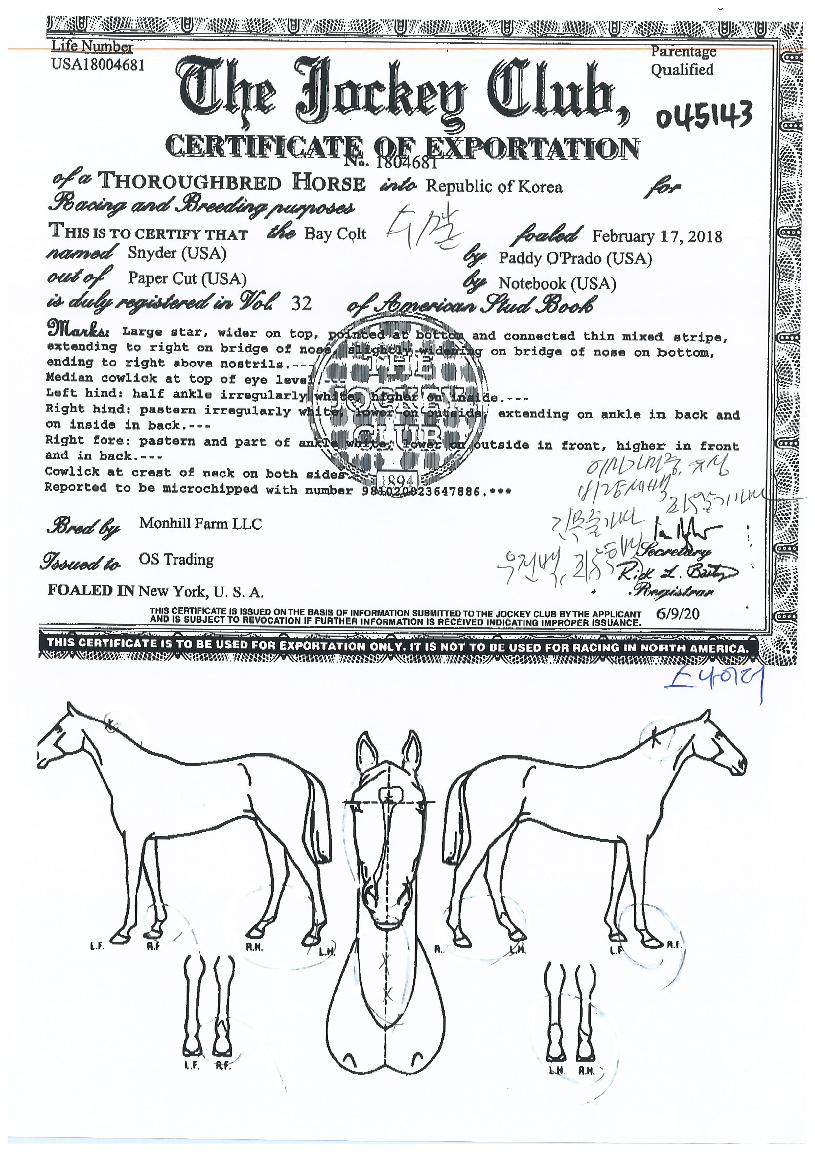 Life Number
USA18004681
Parentage
Qualified
The Jockey Club,
045143
CERTIFICATE OF EXPORTATION
No. 1804681
of a THOROUGHBRED HORSE into Republic of Korea for
Racing and Breeding purposes
THIS IS TO CERTIFY THAT the Bay Colt foaled February 17, 2018
named Snyder (USA) by Paddy O'Prado (USA)
out of Paper Cut (USA) by Notebook (USA)
is duly registered in Vol. 32 of American Stud Book
Marks: Large star, wider on top, pointed at bottom and connected thin mixed stripe,
extending to right on bridge of nose, slightly widening on bridge of nose on bottom,
ending to right above nostrils.---
Median cowlick at top of eye level.---
Left hind: half ankle irregularly white, higher on inside.---
Right hind: pastern irregularly white, lower on outside, extending on ankle in back and
on inside in back.---
Right fore: pastern and part of ankle white, lower on outside in front, higher in front
and in back.---
Cowlick at crest of neck on both sides.
Reported to be microchipped with number 981020023647886.***
THE
JOCKEY
CLUB
1894
Bred by Monhill Farm LLC
Issued to OS Trading
Secretary
Registrar
FOALED IN New York, U. S. A.
THIS CERTIFICATE IS ISSUED ON THE BASIS OF INFORMATION SUBMITTED TO THE JOCKEY CLUB BY THE APPLICANT
AND IS SUBJECT TO REVOCATION IF FURTHER INFORMATION IS RECEIVED INDICATING IMPROPER ISSUANCE. 6/9/20
THIS CERTIFICATE IS TO BE USED FOR EXPORTATION ONLY. IT IS NOT TO BE USED FOR RACING IN NORTH AMERICA.
스나이더
L.F. R.F. R.H. L.H. R. L.H. L.F. R.F.
L.F. R.F. L.H. R.H.